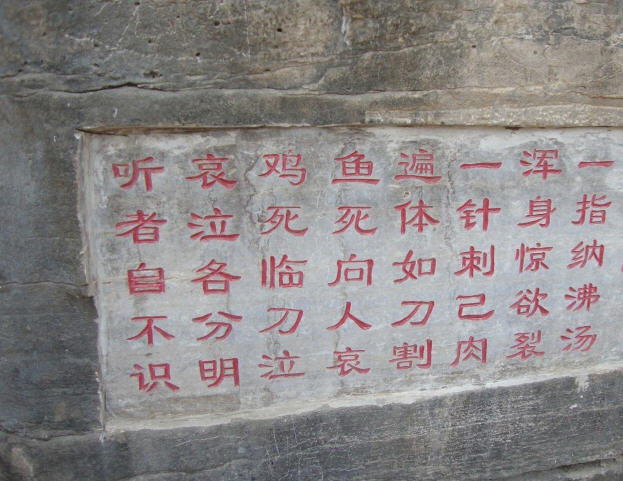 一指纳沸汤
浑身惊欲裂
一针刺己肉
遍体如刀割
鱼死向人哀
鸡死临刀泣
哀泣各分明
听者自不识